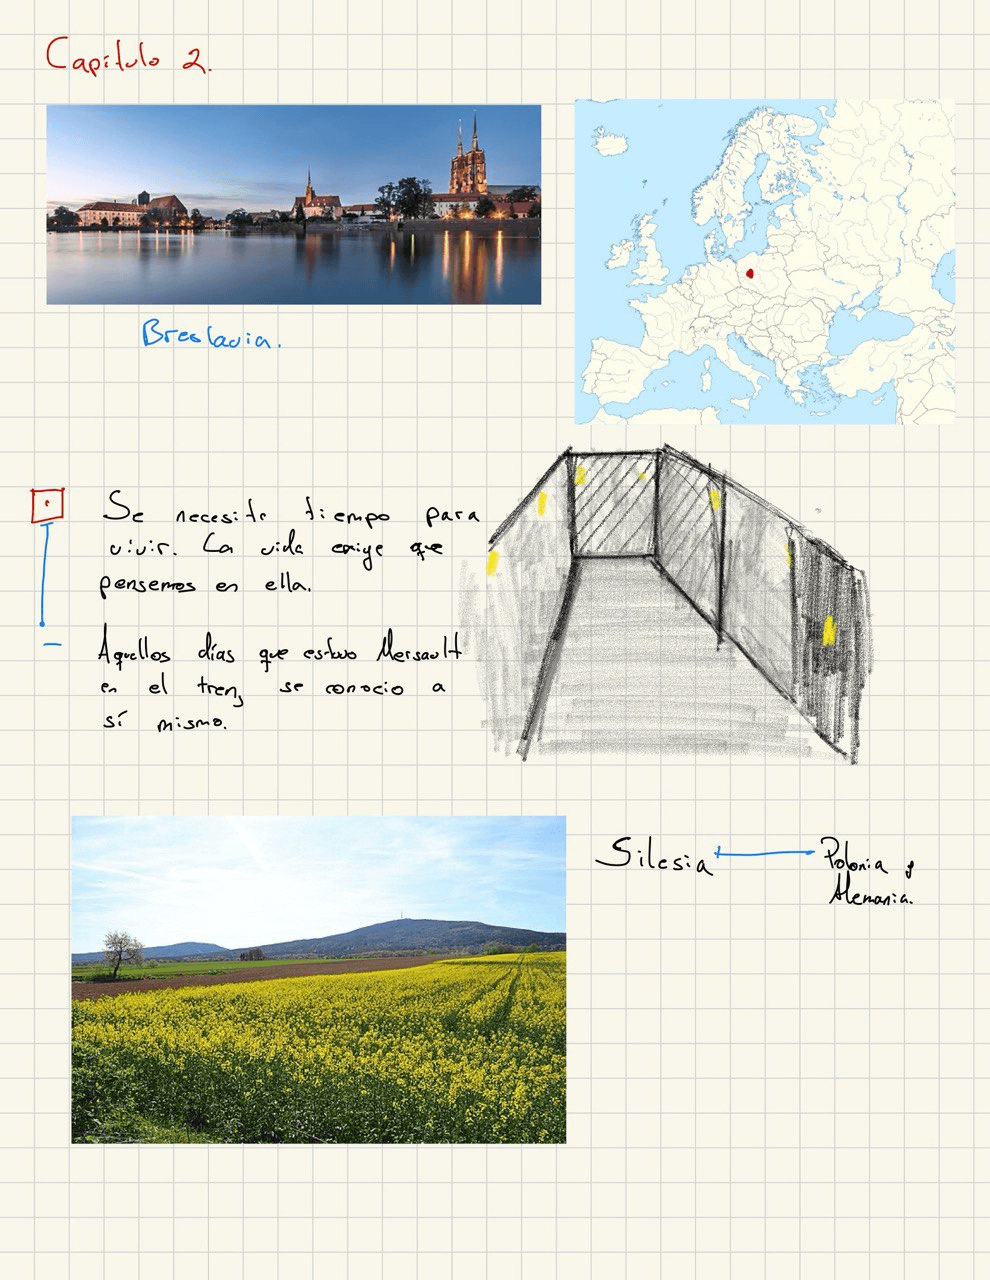 Capítulo 2.
Breslavia.
Se necesita tiempo para
vivir. La vida exige que
pensemos en ella.
Aquellos días que estuvo Mersault
en el tren, se conocio a
sí mismo.
Silesia
Polonia y
Alemania.